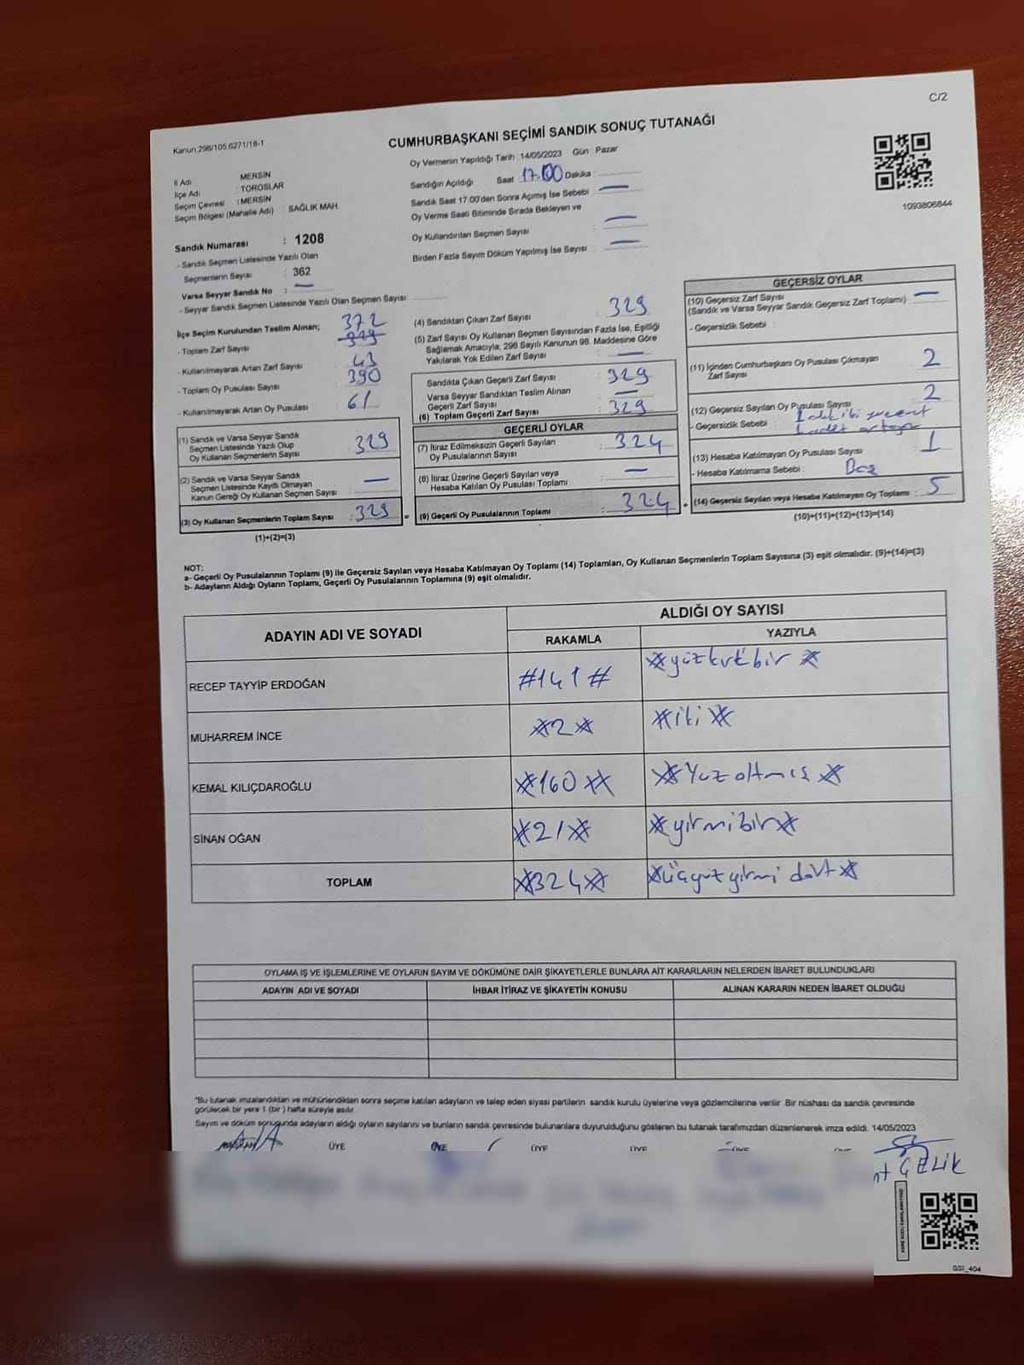 C/2
Kanun:298/105,6271/18-1
CUMHURBAŞKANI SEÇİMİ SANDIK SONUÇ TUTANAĞI
İl Adı : MERSİN
İlçe Adı : TOROSLAR
Seçim Çevresi : MERSİN
Seçim Bölgesi (Mahalle Adı) SAĞLIK MAH.
Sandık Numarası : 1208
- Sandık Seçmen Listesinde Yazılı Olan
Seçmenlerin Sayısı : 362
Varsa Seyyar Sandık No : —
- Seyyar Sandık Seçmen Listesinde Yazılı Olan Seçmen Sayısı:
Oy Vermenin Yapıldığı Tarih : 14/05/2023 Gün : Pazar
Sandığın Açıldığı Saat 17.00 Dakika :
Sandık Saat 17.00'den Sonra Açılmış İse Sebebi : —
Oy Verme Saati Bitiminde Sırada Bekleyen ve
Oy Kullandırılan Seçmen Sayısı : —
Birden Fazla Sayım Döküm Yapılmış İse Sayısı : —
1093806844
İlçe Seçim Kurulundan Teslim Alınan; 372
- Toplam Zarf Sayısı
- Kullanılmayarak Artan Zarf Sayısı : 43
- Toplam Oy Pusulası Sayısı : 390
- Kullanılmayarak Artan Oy Pusulası : 61
(1) Sandık ve Varsa Seyyar Sandık
Seçmen Listesinde Yazılı Olup
Oy Kullanan Seçmenlerin Sayısı : 329
(2) Sandık ve Varsa Seyyar Sandık
Seçmen Listesinde Kayıtlı Olmayan
Kanun Gereği Oy Kullanan Seçmen Sayısı : —
(3) Oy Kullanan Seçmenlerin Toplam Sayısı : 329
(1)+(2)=(3)
(4) Sandıktan Çıkan Zarf Sayısı : 329
(5) Zarf Sayısı Oy Kullanan Seçmen Sayısından Fazla İse, Eşitliği
Sağlamak Amacıyla, 298 Sayılı Kanunun 98. Maddesine Göre
Yakılarak Yok Edilen Zarf Sayısı : —
Sandıkta Çıkan Geçerli Zarf Sayısı : 329
Varsa Seyyar Sandıktan Teslim Alınan
Geçerli Zarf Sayısı
(6) Toplam Geçerli Zarf Sayısı : 329
GEÇERLİ OYLAR
(7) İtiraz Edilmeksizin Geçerli Sayılan
Oy Pusulasının Sayısı : 324
(8) İtiraz Üzerine Geçerli Sayılan veya
Hesaba Katılan Oy Pusulası Toplamı : —
(9) Geçerli Oy Pusulalarının Toplamı : 324
GEÇERSİZ OYLAR
(10) Geçersiz Zarf Sayısı : —
(Sandık ve Varsa Seyyar Sandık Geçersiz Zarf Toplamı)
- Geçersizlik Sebebi :
(11) İçinden Cumhurbaşkanı Oy Pusulası Çıkmayan
Zarf Sayısı : 2
(12) Geçersiz Sayılan Oy Pusulası Sayısı : 2
- Geçersizlik Sebebi
(13) Hesaba Katılmayan Oy Pusulası Sayısı : 1
- Hesaba Katılmama Sebebi : Boş
(14) Geçersiz Sayılan veya Hesaba Katılmayan Oy Toplamı : 5
(10)+(11)+(12)+(13)=(14)
NOT:
a- Geçerli Oy Pusulalarının Toplamı (9) ile Geçersiz Sayılan veya Hesaba Katılmayan Oy Toplamı (14) Toplamları, Oy Kullanan Seçmenlerin Toplam Sayısına (3) eşit olmalıdır. (9)+(14)=(3)
b- Adayların Aldığı Oyların Toplamı, Geçerli Oy Pusulalarının Toplamına (9) eşit olmalıdır.
ADAYIN ADI VE SOYADI ALDIĞI OY SAYISI
RAKAMLA YAZIYLA
RECEP TAYYİP ERDOĞAN #141# *yüzkırkbir*
MUHARREM İNCE *2* *iki*
KEMAL KILIÇDAROĞLU *160* *Yüz altmış*
SİNAN OĞAN *21* *yirmibir*
TOPLAM *324* *üçyüz yirmi dört*
OYLAMA İŞ VE İŞLEMLERİNE VE OYLARIN SAYIM VE DÖKÜMÜNE DAİR ŞİKAYETLERLE BUNLARA AİT KARARLARIN NELERDEN İBARET BULUNDUKLARI
ADAYIN ADI VE SOYADI İHBAR İTİRAZ VE ŞİKAYETİN KONUSU ALINAN KARARIN NEDEN İBARET OLDUĞU
"Bu tutanak imzalandıktan ve mühürlendikten sonra seçime katılan adayların ve talep eden siyasi partilerin sandık kurulu üyelerine veya gözlemcilerine verilir. Bir nüshası da sandık çevresinde
görülecek bir yere 1 (bir) hafta süreyle asılır.
Sayım ve döküm sonugunda adayların aldığı oyların sayılarını ve bunların sandık çevresinde bulunanlara duyurulduğunu gösteren bu tutanak tarafımızdan düzenlenerek imza edildi. 14/05/2023
ÜYE ÜYE ÜYE ÜYE ÜYE
ÇELİK
SSI_404